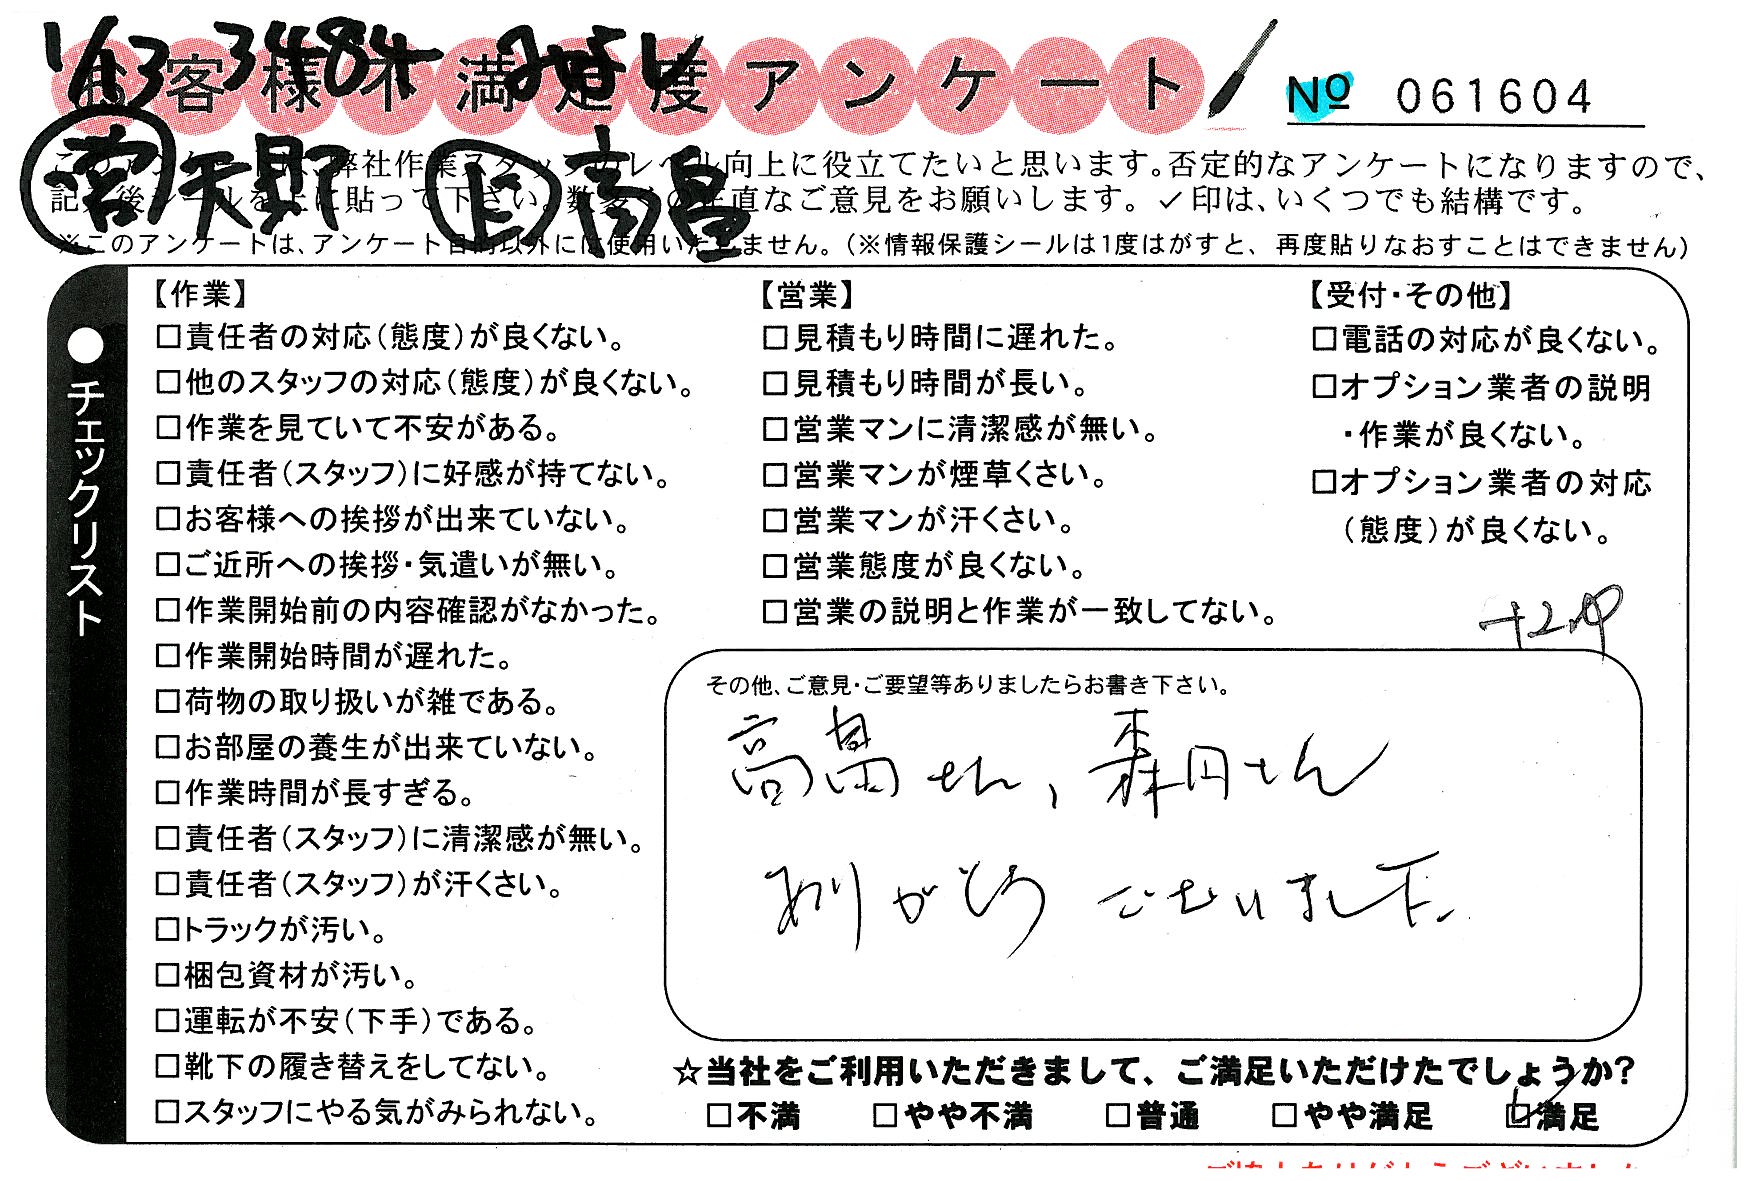 1/13 3484
お客様不満足度アンケート
№ 061604
営 矢野 上 高畠
このアンケートは、弊社作業スタッフのレベル向上に役立てたいと思います。否定的なアンケートになりますので、
記入後シールを上に貼って下さい。数多くの正直なご意見をお願いします。✓印は、いくつでも結構です。
※このアンケートは、アンケート目的以外には使用いたしません。（※情報保護シールは1度はがすと、再度貼りなおすことはできません）
●チェックリスト
【作業】
□責任者の対応（態度）が良くない。
□他のスタッフの対応（態度）が良くない。
□作業を見ていて不安がある。
□責任者（スタッフ）に好感が持てない。
□お客様への挨拶が出来ていない。
□ご近所への挨拶・気遣いが無い。
□作業開始前の内容確認がなかった。
□作業開始時間が遅れた。
□荷物の取り扱いが雑である。
□お部屋の養生が出来ていない。
□作業時間が長すぎる。
□責任者（スタッフ）に清潔感が無い。
□責任者（スタッフ）が汗くさい。
□トラックが汚い。
□梱包資材が汚い。
□運転が不安（下手）である。
□靴下の履き替えをしてない。
□スタッフにやる気がみられない。
【営業】
□見積もり時間に遅れた。
□見積もり時間が長い。
□営業マンに清潔感が無い。
□営業マンが煙草くさい。
□営業マンが汗くさい。
□営業態度が良くない。
□営業の説明と作業が一致してない。
【受付・その他】
□電話の対応が良くない。
□オプション業者の説明
・作業が良くない。
□オプション業者の対応
（態度）が良くない。
+2P
その他、ご意見・ご要望等ありましたらお書き下さい。
高畠さん、森円さん
ありがとう ございました。
☆当社をご利用いただきまして、ご満足いただけたでしょうか?
□不満 □やや不満 □普通 □やや満足 ☑満足